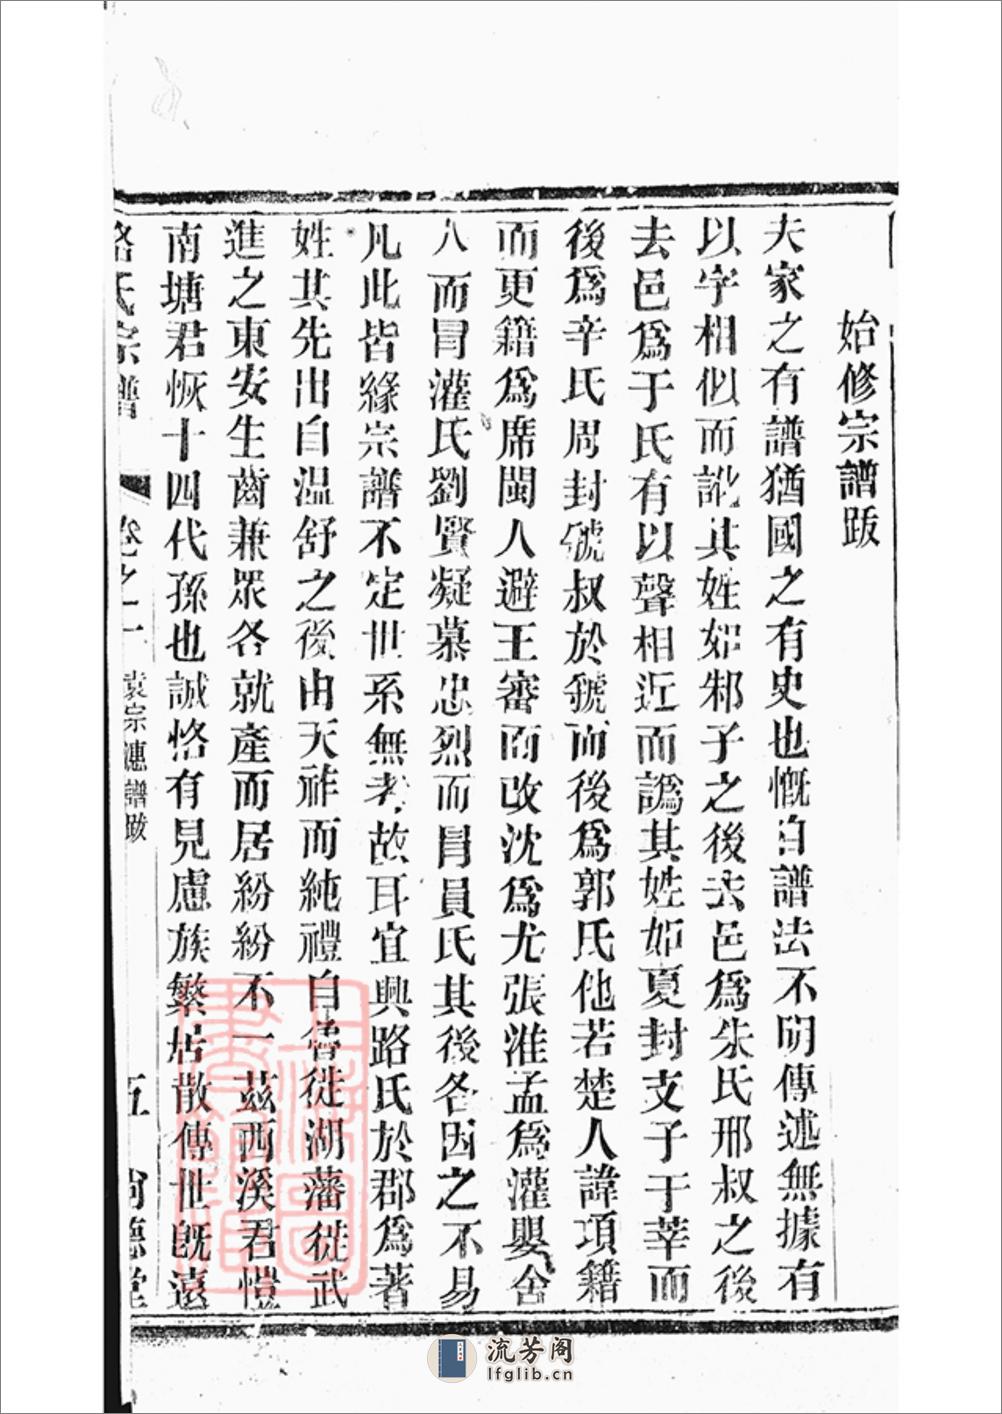 始修宗譜跋
夫家之有譜猶國之有史也慨自譜法不明傳述無據有
以字相似而訛其姓如邾子之後去邑爲朱氏邢叔之後
去邑爲于氏有以聲相近而譌其姓如夏封支子于莘而
後爲辛氏周封虢叔於虢而後爲郭氏他若楚人諱項籍
而更籍爲席閩人避王審而改沈爲尤張淮孟爲灌嬰舍
人而冒灌氏劉賢凝慕忠烈而冒員氏其後各因之不易
凡此皆緣宗譜不定世系無考故耳宜興路氏於郡爲著
姓其先出自温舒之後由天祚而純禮自魯從湖藩從武
進之東安生齒兼眾各就產而居紛紛不一茲西溪君愷
南塘君恢十四代孫也誠恪有見慮族繁居散傳世既遠
路氏宗譜
卷之一
袁宗漣譜跋
五
尚德堂
上海圖書館藏
流芳阁
lfglib.cn